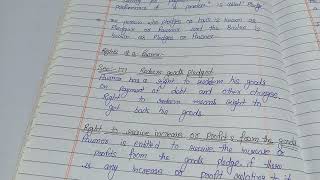 performance of any promise" is called Pledge
the person who pledges the goods is known as
Pledgor or Pawnor and the Bailee is
known as Pledgee or Pawnee
Rights of a Pawnor:-
Sec-177 Redeem goods pledged
Pawnor has a right to redeem his goods
on payment of debt and other charges.
Right to redeem means right to
get back his goods.
Right to receive increase or profits from the goods
Pawnor is entitled to receive the increase or
profits from the goods pledge, if there
is any increase or profit relative to it